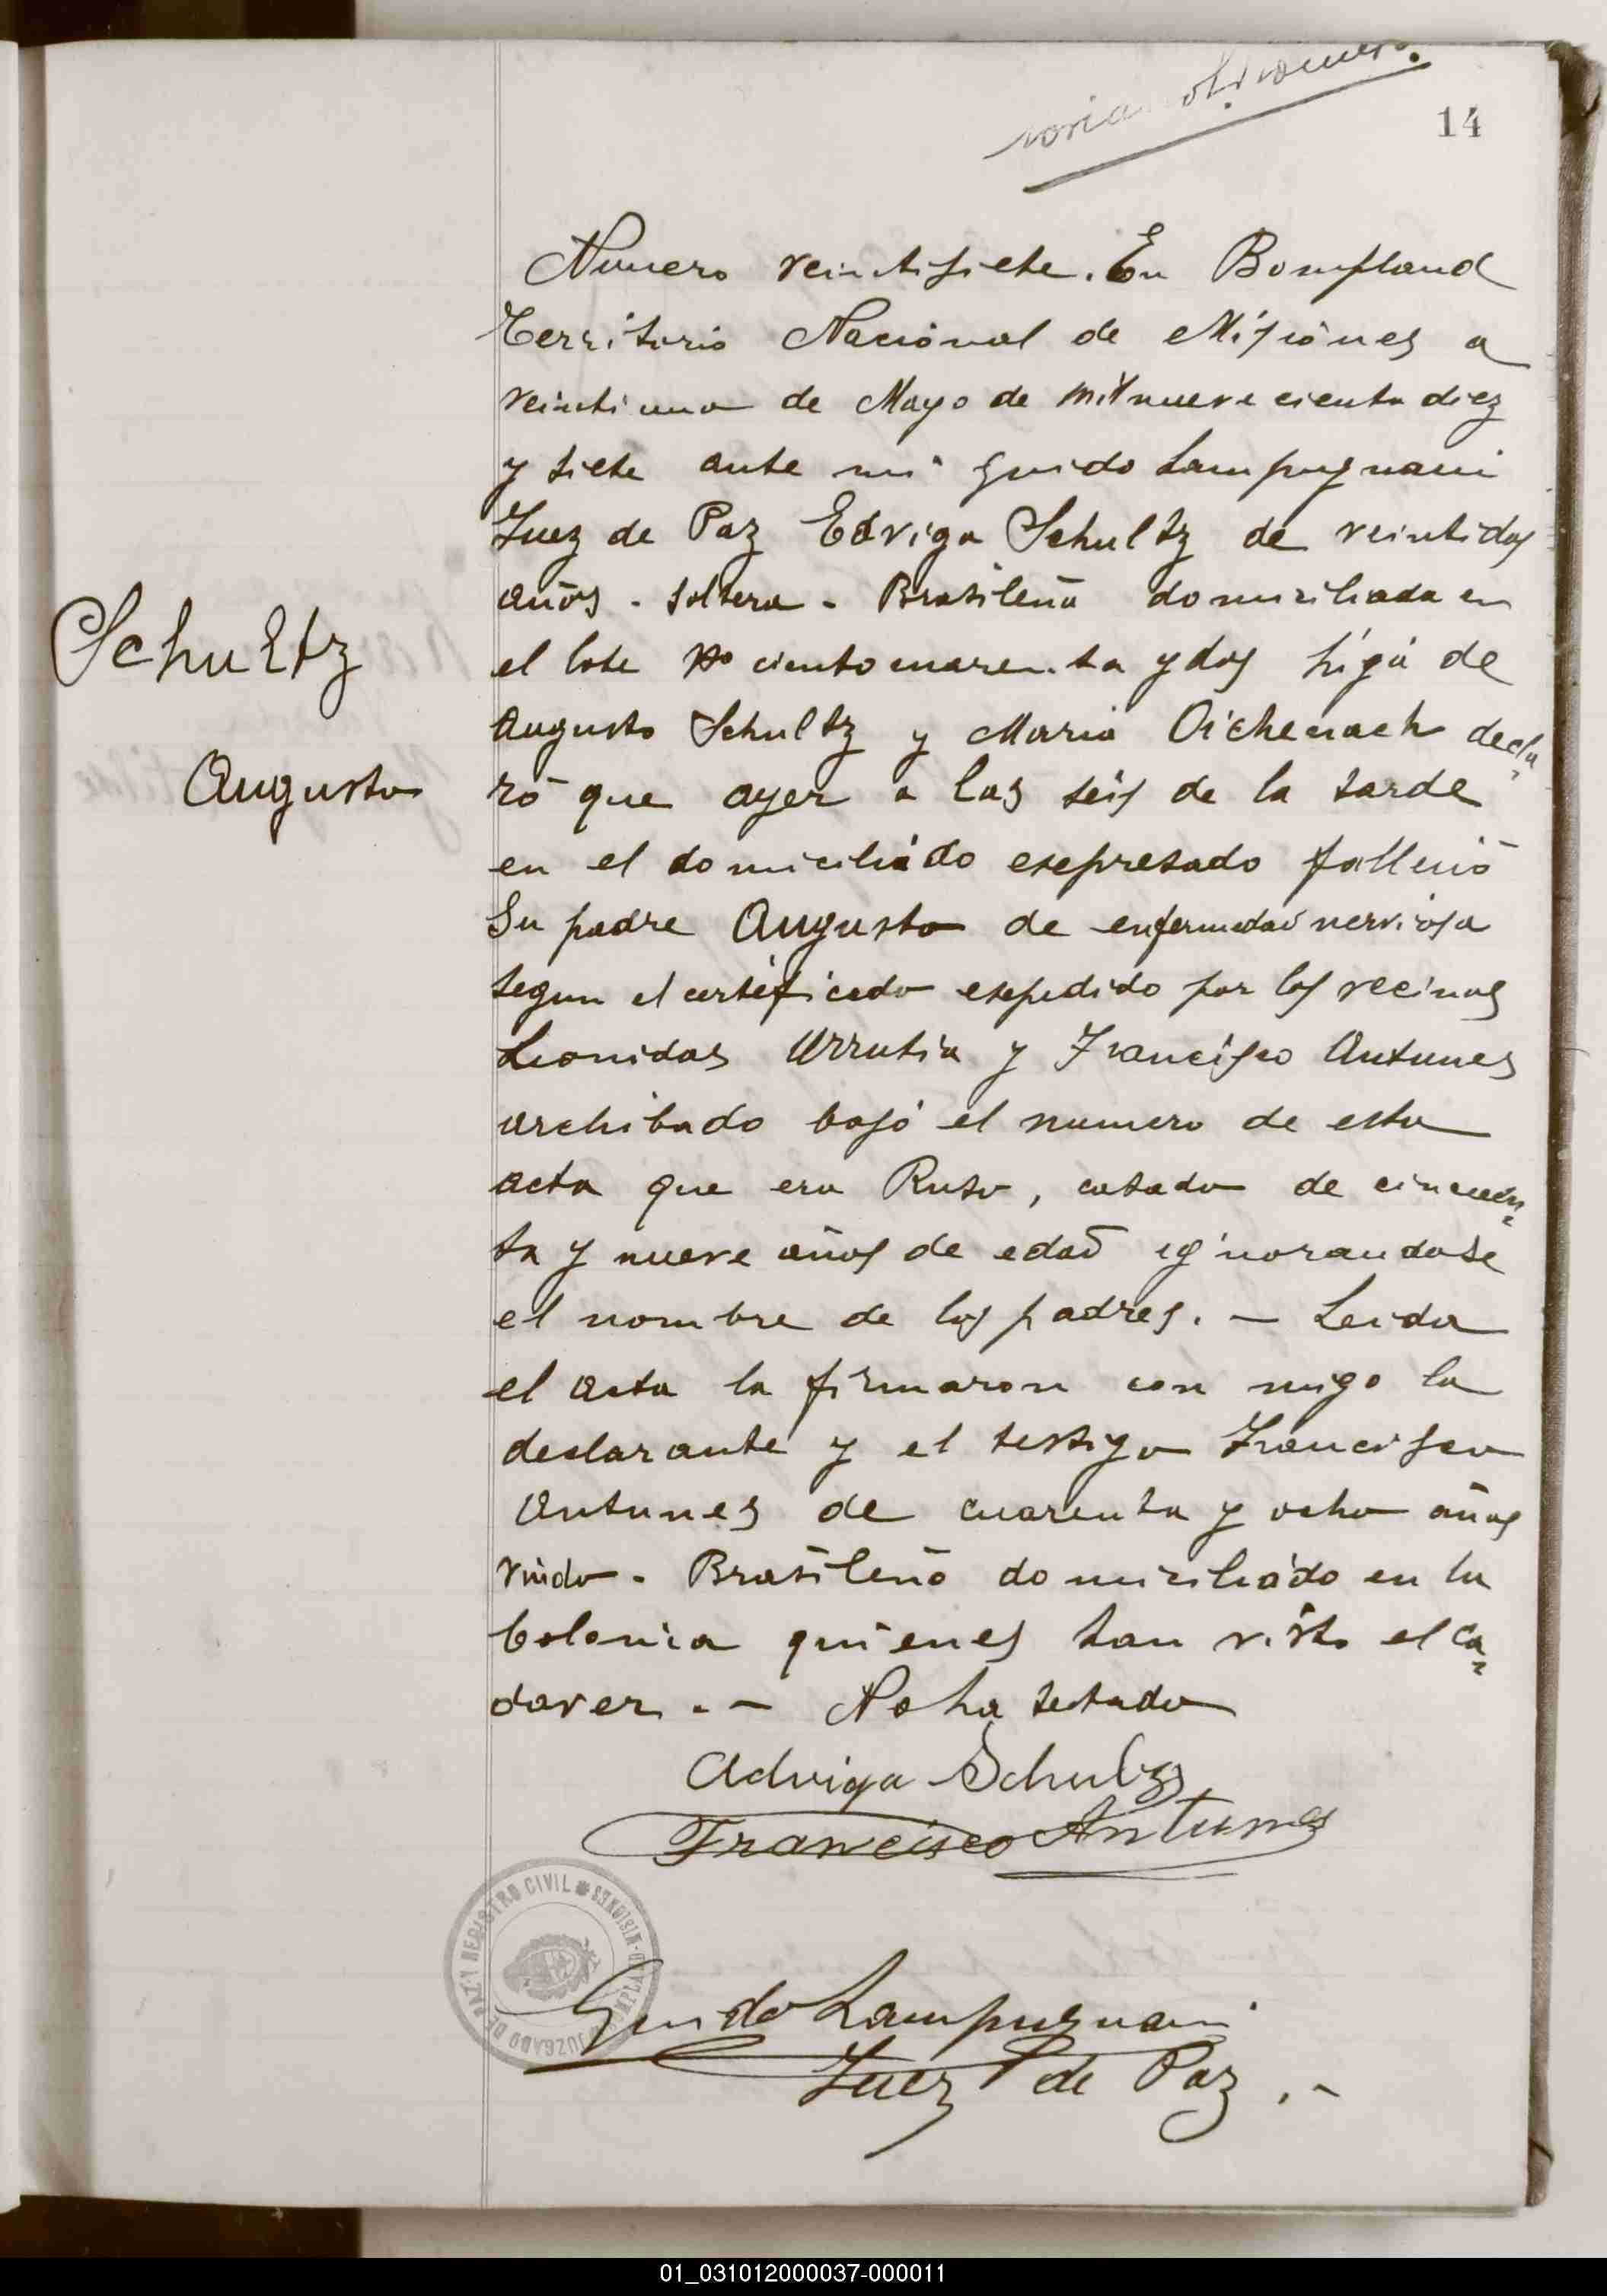 14
Numero veintisiete. En Bompland
Territorio Nacional de Misiones a
veintiuno de Mayo de mil nueve ciento diez
y siete ante mi Guido Lampugnani
Juez de Paz Edviga Schultz de veintidos
años - soltera - Brasileña domiciliada en
el lote No ciento cuarenta y dos higa de
Augusto Schultz y Maria Oichenach decla=
ró que ayer a las seis de la tarde
en el domiciliado esepresado falleció
Su padre Augusto de enfermedad nerviosa
segun el certificado esepedido por los vecinos
Leonidas Urrutia y Francisco Antunes
archibado bajo el numero de esta
acta que era Ruso, casado de cincuen=
ta y nueve años de edad ignorandose
el nombre de los padres. - Leida
el acta la firmaron con migo la
declarante y el testigo Francisco
Antunes de cuarenta y ocho años
viudo - Brasileño domiciliado en la
Colonia quienes han visto el ca=
daver. - No ha testado
Schultz
Augusto
Adviga Schultz
Francisco Antunes
JUZGADO DE PAZ Y REGISTRO CIVIL BOMPLAND-MISIONES
Guido Lampugnani
Juez de Paz. -
01_031012000037-000011